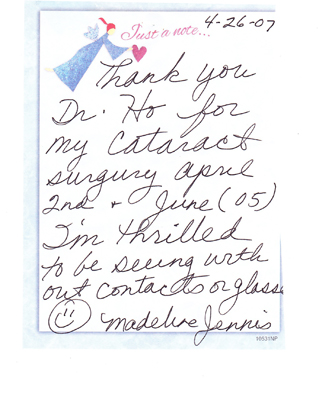 4-26-07
Just a note...
Thank you
Dr. Ho for
my Cataract
surgury april
2nd + June (05)
I'm thrilled
to be seeing with
out contacts or glasse
Madeline Jennis
10531NP